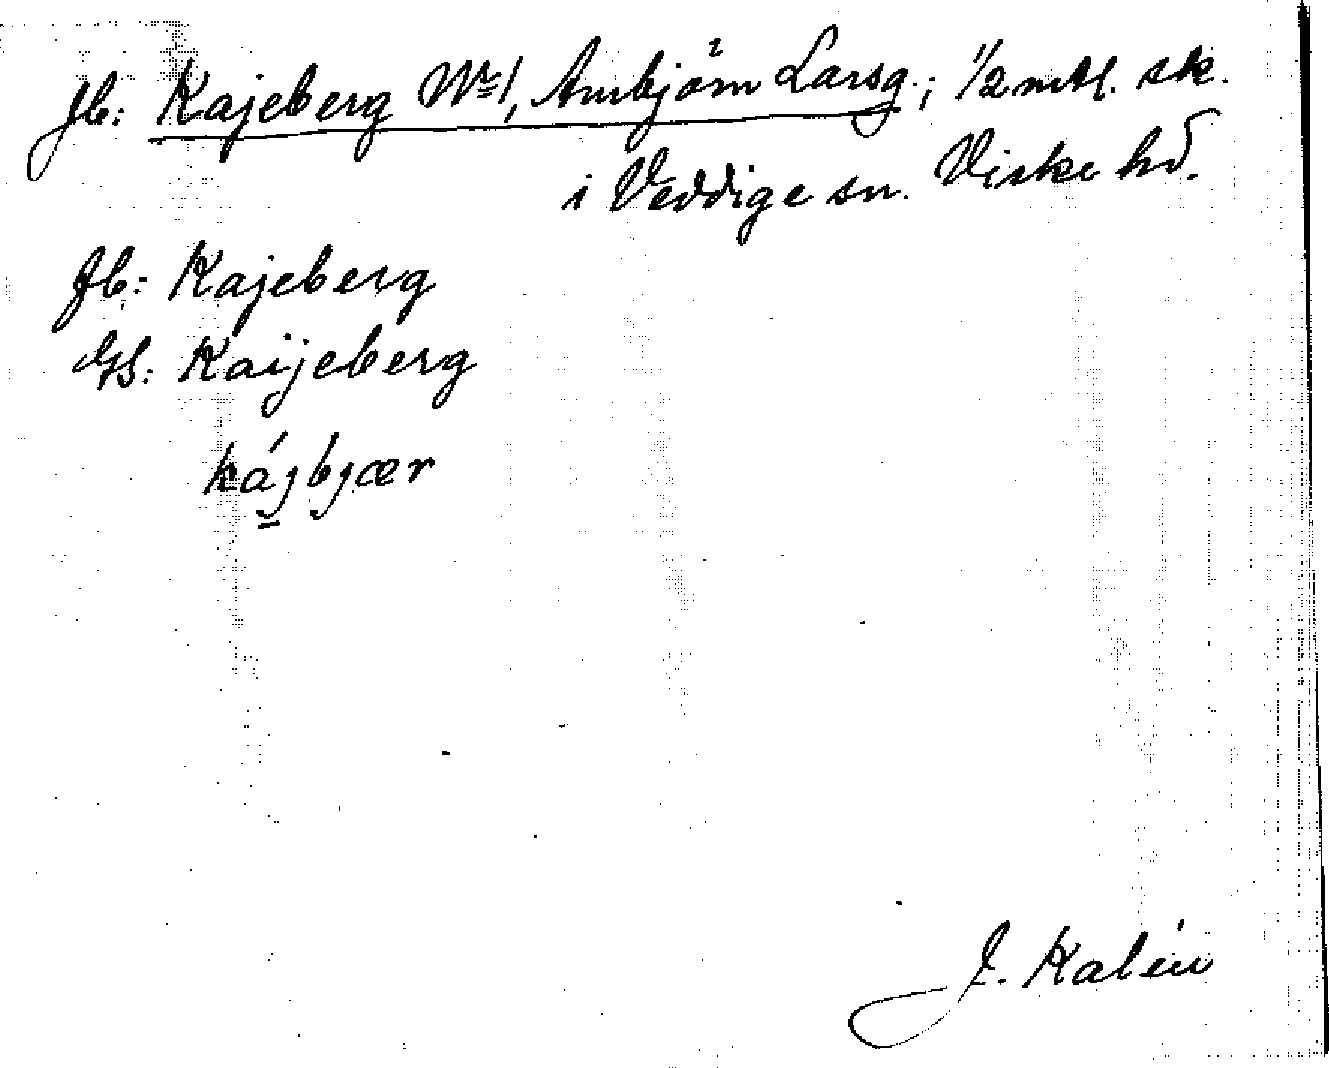 Jb: Kajeberg Nr 1, Ambjörn Larsg.; 1/2 mtl. sk.
i Veddige sn. Viske hd.
Jb: Kajeberg
GS: Kaijeberg
kájbjær
J. Kalén